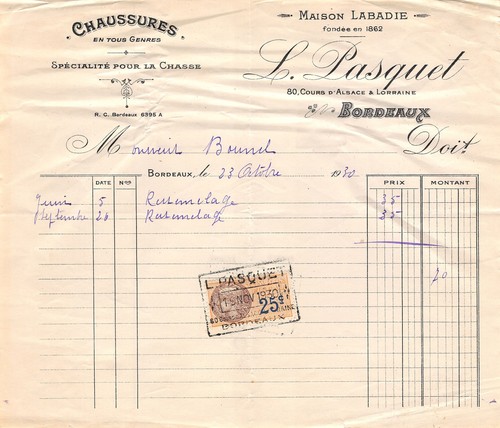 CHAUSSURES
EN TOUS GENRES
SPÉCIALITÉ POUR LA CHASSE
R. C. Bordeaux 6395 A
MAISON LABADIE
fondée en 1862
L. Pasquet
80, COURS D'ALSACE & LORRAINE
BORDEAUX
Monsieur Doit
BORDEAUX, le 23 Octobre 1930
DATE Nos PRIX MONTANT
Juin 5 Ressemelage 35
Septembre 26 Ressemelage 35
70
L. PASQUET
15 NOV 1930
25c
BORDEAUX